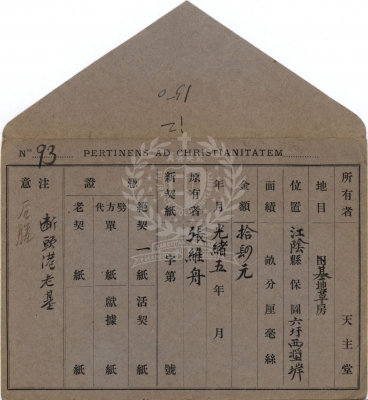 150
12
No 93 PERTINENS AD CHRISTIANITATEM
所有者 天主堂
地目 田基地草房
位置 江陰縣 保 圖 六圩西灣岸
面積 畝 分 厘 毫 絲
金額 拾肆元
年月 光緒五年 月
原有者 張維舟
新契紙 字第 號
證憑
絕契一紙 活契 紙
代方單 紙 獻據
老契 紙 紙
注意 斷頭港老基